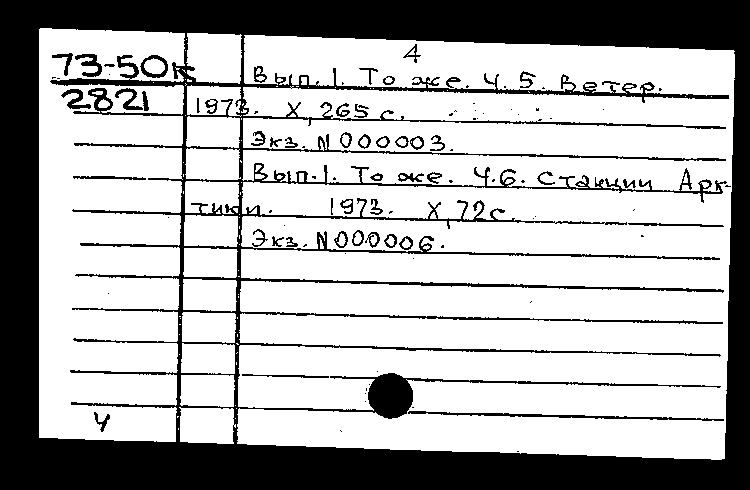 4
73-50к
2821
Вып. 1. То же. Ч. 5. Ветер.
1973. X, 265 с.
Экз. N 000003.
Вып. 1. То же. Ч. 6. Станции Арк-
тики. 1973. X, 72 с.
Экз. N 000006.
Ч